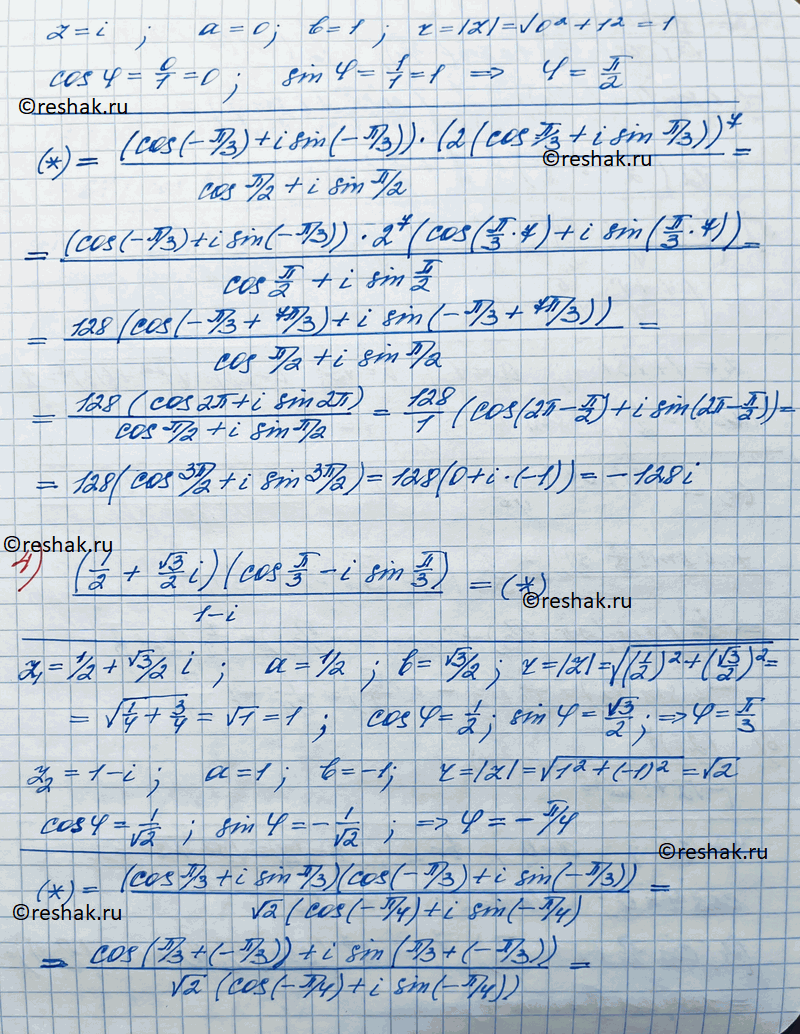 z = i ; a = 0; b = 1 ; r = |z| = √0² + 1² = 1
cos φ = 0/1 = 0 ; sin φ = 1/1 = 1 ⇒ φ = π/2
©reshak.ru
(*) = (cos(-π/3) + i sin(-π/3)) · (2(cos π/3 + i sin π/3))⁷ / cos π/2 + i sin π/2 =
©reshak.ru
= (cos(-π/3) + i sin(-π/3)) · 2⁷ (cos(π/3 · 7) + i sin(π/3 · 7)) / cos π/2 + i sin π/2 =
= 128 (cos(-π/3 + 7π/3) + i sin(-π/3 + 7π/3)) / cos π/2 + i sin π/2 =
= 128 (cos 2π + i sin 2π) / cos π/2 + i sin π/2 = 128/1 (cos(2π - π/2) + i sin(2π - π/2)) =
= 128 (cos 3π/2 + i sin 3π/2) = 128(0 + i · (-1)) = -128i
©reshak.ru
4) (1/2 + √3/2 i) (cos π/3 - i sin π/3) / 1 - i = (*)
©reshak.ru
z₁ = 1/2 + √3/2 i ; a = 1/2 ; b = √3/2 ; r = |z| = √(1/2)² + (√3/2)² =
= √1/4 + 3/4 = √1 = 1 ; cos φ = 1/2 ; sin φ = √3/2 ; ⇒ φ = π/3
z₂ = 1 - i ; a = 1 ; b = -1; r = |z| = √1² + (-1)² = √2
cos φ = 1/√2 ; sin φ = - 1/√2 ; ⇒ φ = - π/4
©reshak.ru
(*) = (cos π/3 + i sin π/3)(cos(-π/3) + i sin(-π/3)) / √2 (cos(-π/4) + i sin(-π/4) =
©reshak.ru
= cos(π/3 + (-π/3)) + i sin(π/3 + (-π/3)) / √2 (cos(-π/4) + i sin(-π/4)) =